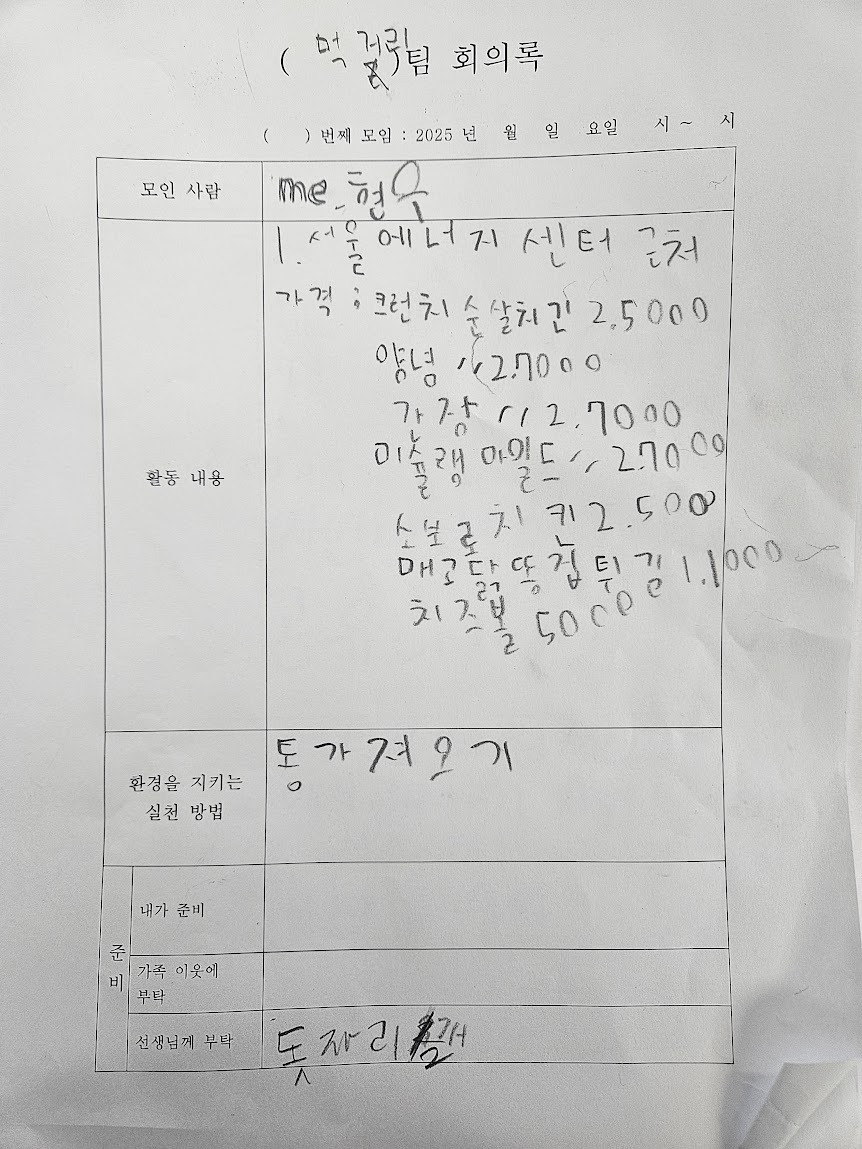 ( 먹 거리 )팀 회의록
( ) 번째 모임 : 2025 년 월 일 요일 시 ~ 시
모인 사람
me 현우
활동 내용
1. 서울에너지 센터 근처
가격 : 크런치 순살치킨 2.5000
양념 〃 2.7000
간장 〃 2.7000
미슐랭 마일드 〃 2.7000
소보로 치킨 2.5000
매코닭똥집튀김 1.1000
치즈볼 5000
환경을 지키는
실천 방법
통가져오기
준비
내가 준비
가족 이웃에
부탁
선생님께 부탁
돗자리 2개